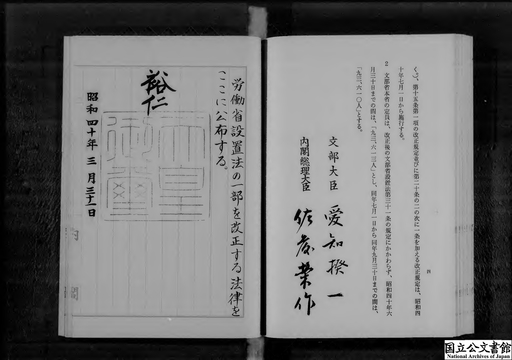 く。)、第十五条第一項の改正規定並びに第二十条の二の次に一条を加える改正規定は、昭和四
十年七月一日から施行する。
2 文部省本省の定員は、改正後の文部省設置法第三十一条の規定にかかわらず、昭和四十年六
月三十日までの間は、「九三、六一三人」とし、同年七月一日から同年九月三十日までの間は、
「九三、六一〇人」とする。
文部大臣 愛知揆一
内閣総理大臣 佐藤榮作
労働省設置法の一部を改正する法律を
ここに公布する。
裕仁
天皇
御璽
昭和四十年三月三十一日
国立公文書館
National Archives of Japan